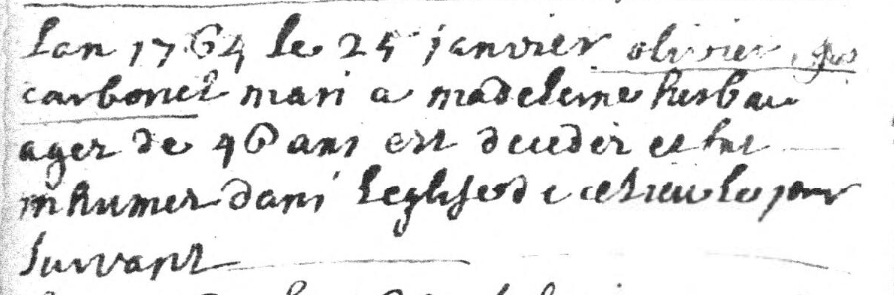 Lan 1764 le 25 janvier olivier
carbonel mari a madeleine herbau
ager de 46 ans est deceder et fut
inhumer dans leglise de ce lieu le jour
suivant